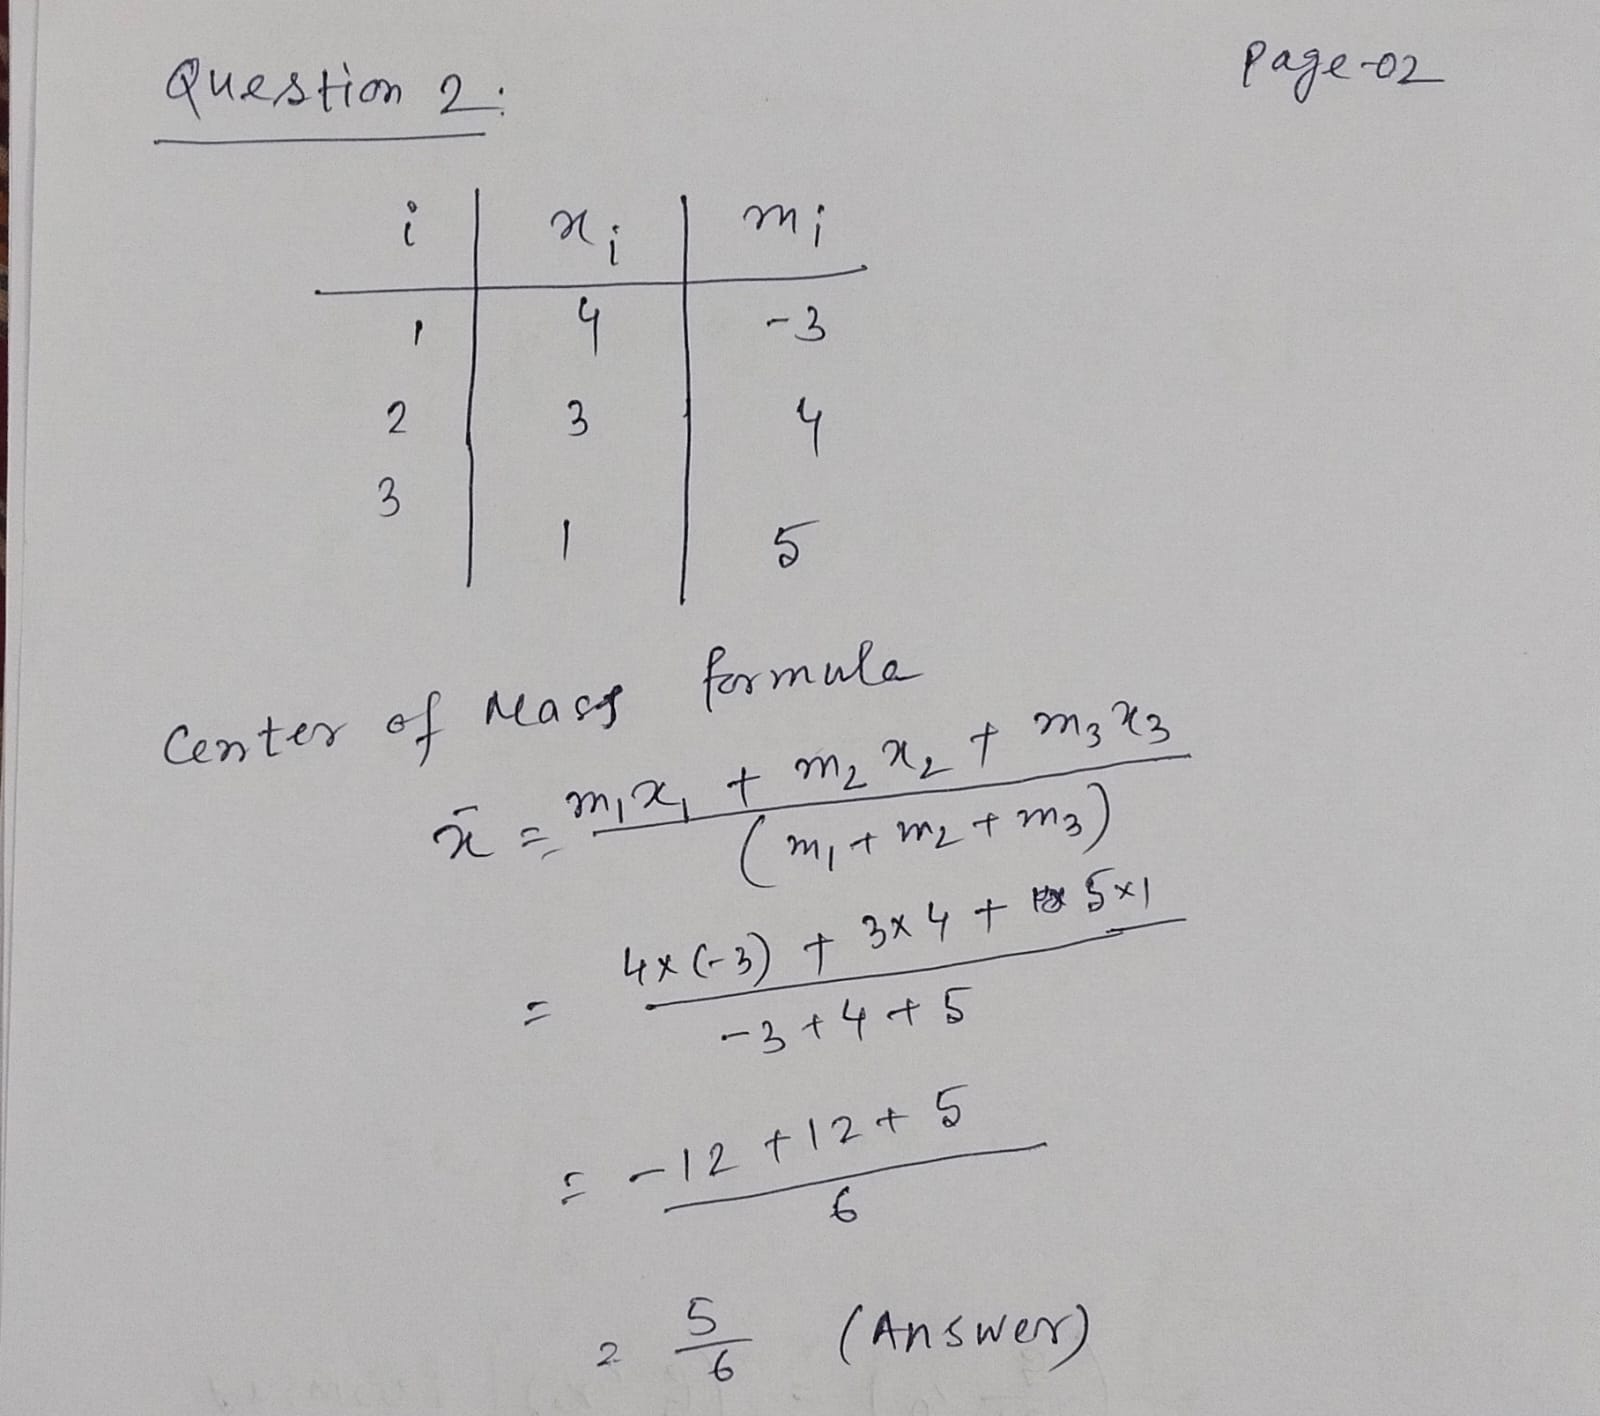 Page-02
Question 2:
i | xᵢ | mᵢ
1 | 4 | -3
2 | 3 | 4
3 | 1 | 5
Center of Mass formula
x̄ = (m₁x₁ + m₂x₂ + m₃x₃) / (m₁ + m₂ + m₃)
= (4×(-3) + 3×4 + 5×1) / (-3+4+5)
= (-12+12+5) / 6
= 5/6 (Answer)